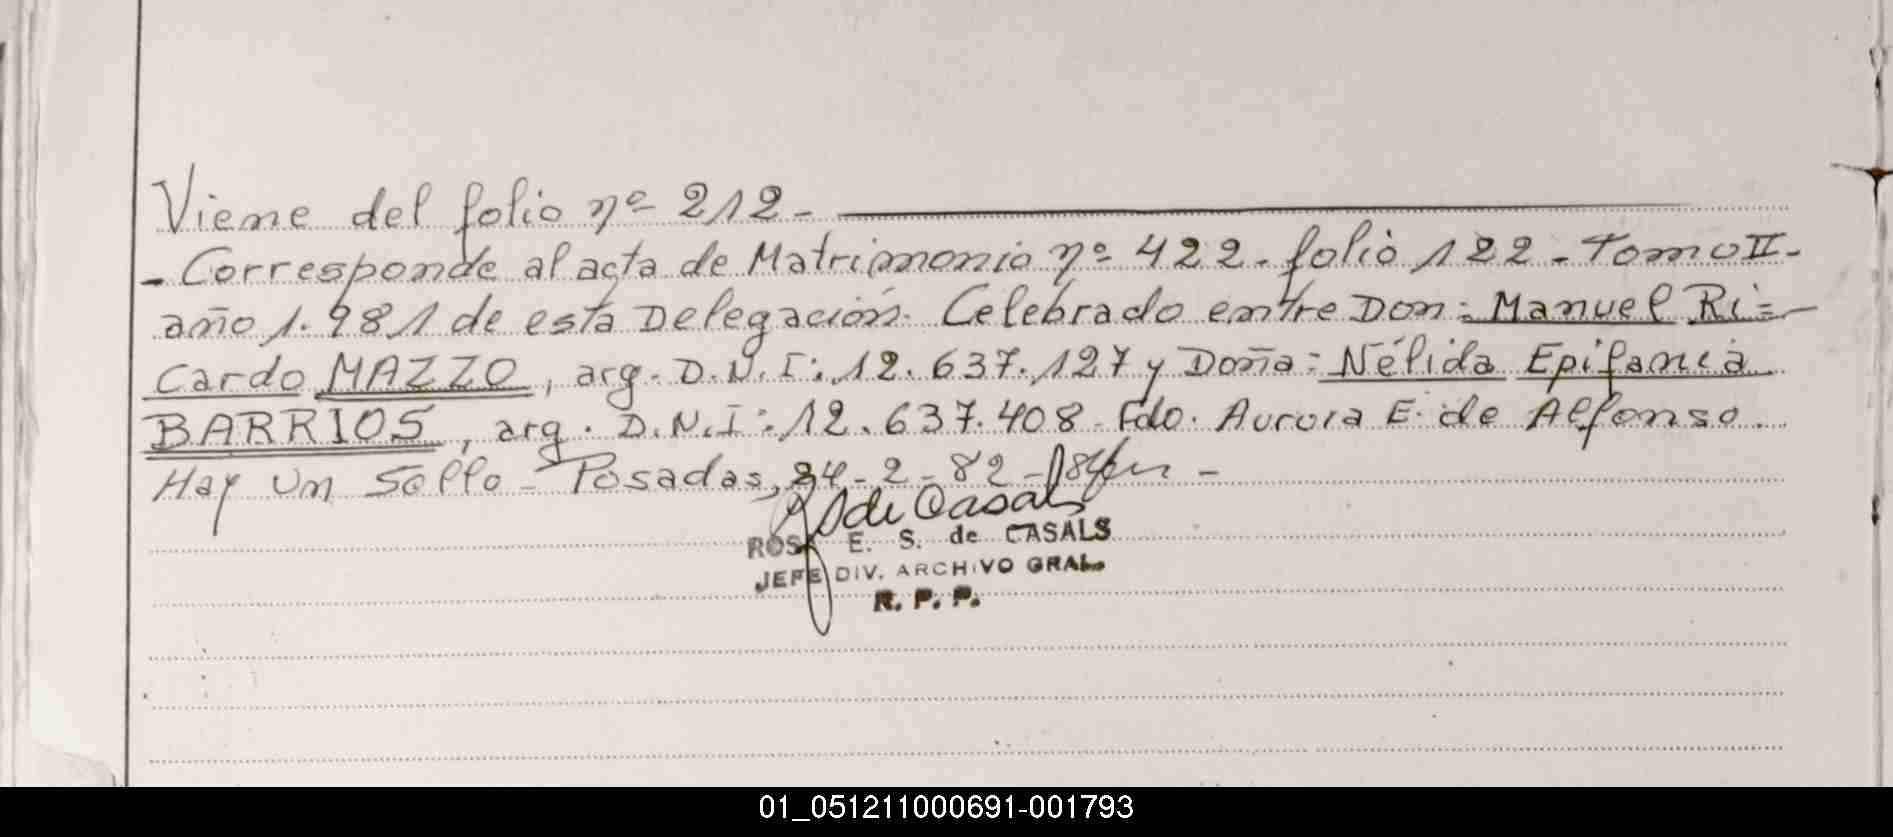 Viene del folio nº 212.-
- Corresponde al acta de Matrimonio nº 422. folio 122 - Tomo II -
año 1.981 de esta Delegación. Celebrado entre Don: Manuel Ri=
cardo MAZZO, arg. D.N.I: 12.637.127 y Doña: Nélida Epifania
BARRIOS, arg. D.N.I: 12.637.408. Fdo. Aurora E. de Alfonso.
Hay un Sello - Posadas, 24-2-82 -
de Casals
ROSA E. S. de CASALS
JEFE DIV. ARCHIVO GRAL.
R. P. P.
01_051211000691-001793